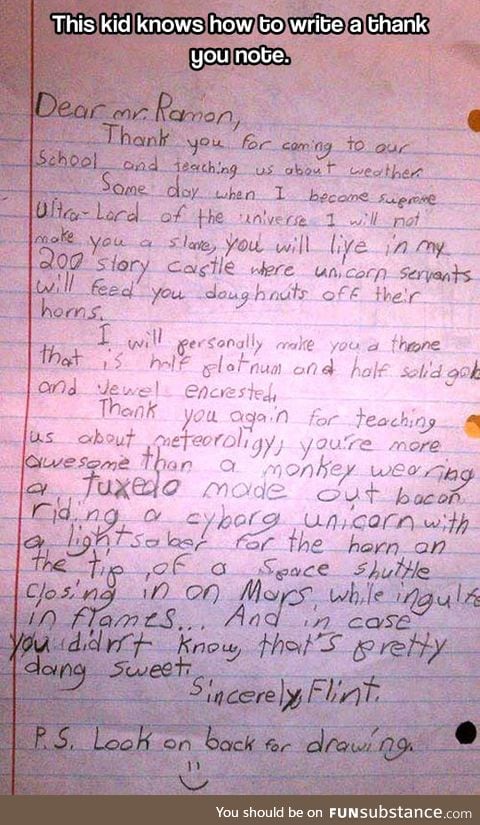 This kid knows how to write a thank
you note.
Dear mr. Ramon,
Thank you for coming to our
School and teaching us about weather
Some day when I become supreme
Ultra-Lord of the universe I will not
make you a slave, you will live in my
200 story castle where unicorn servants
will feed you doughnuts off their
horns.
I will personally make you a throne
that is half platnum and half solid gold
and jewel encrested.
Thank you again for teaching
us about meteoroligy, you're more
awesome than a monkey wearing
a tuxedo made out bacon
riding a cyborg unicorn with
a lightsaber for the horn on
the tip of a space shuttle
closing in on Mars while ingulfe
in flames... And in case
you didn't know, that's pretty
dang sweet.
Sincerely, Flint.
P.S. Look on back for drawing.
You should be on FUNsubstance.com